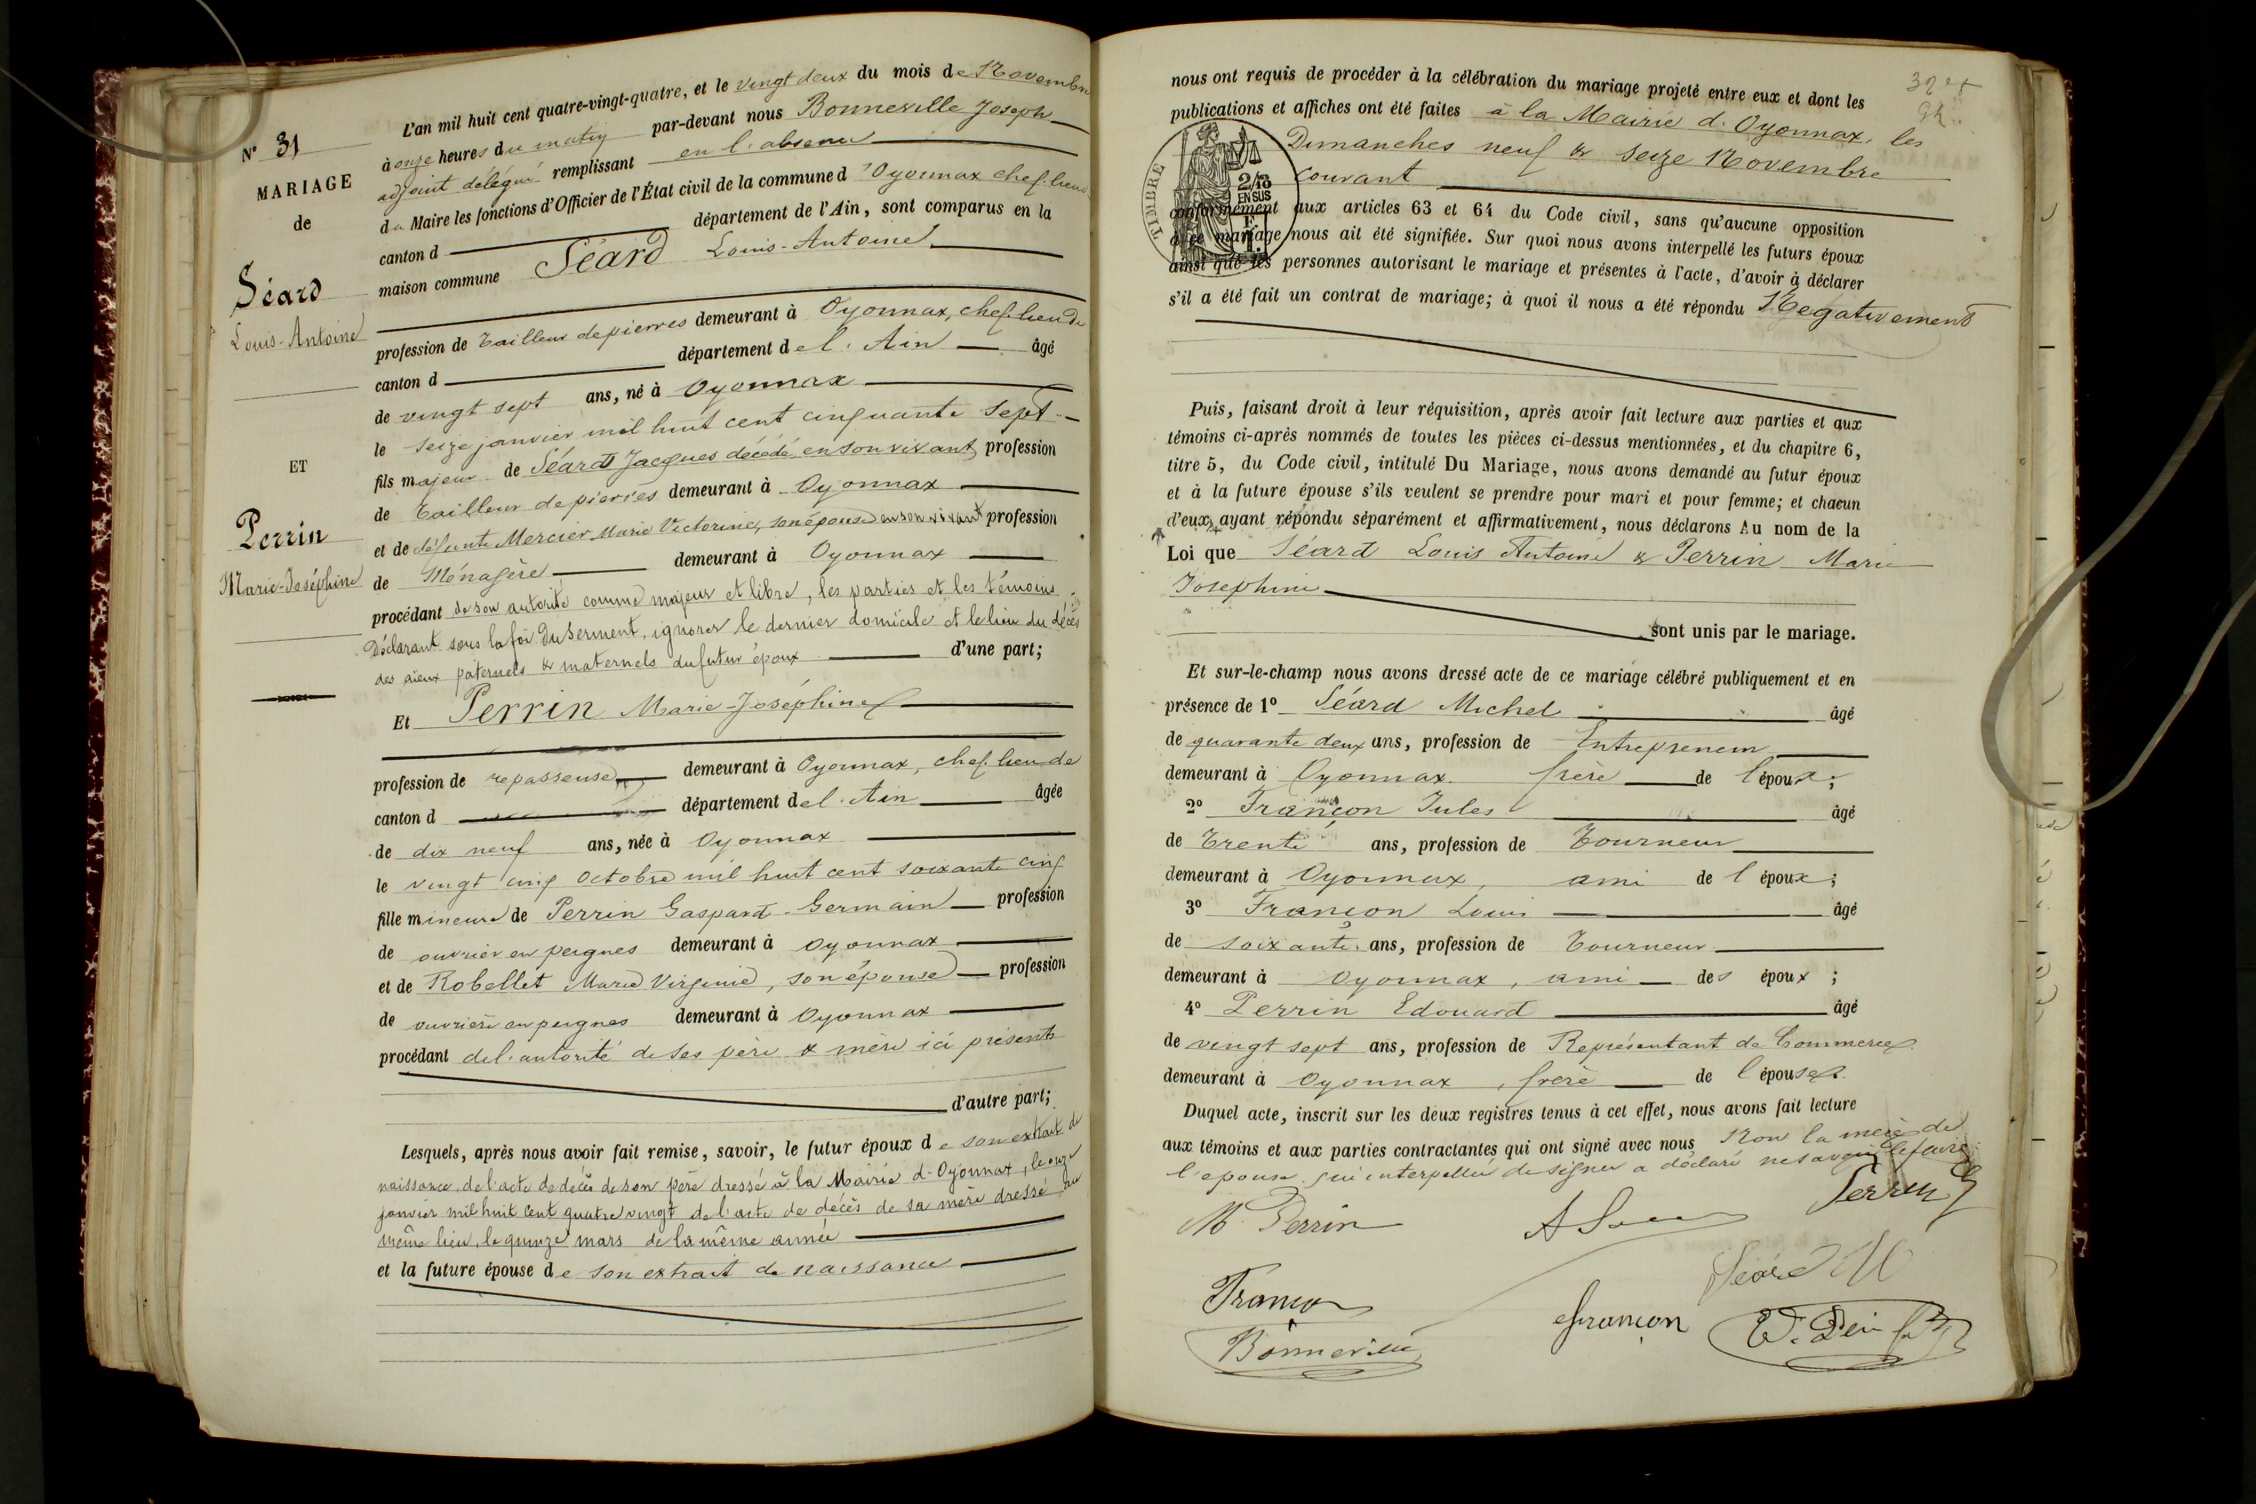 N° 31
MARIAGE
de
Séard
Louis-Antoine
ET
Perrin
Marie-Joséphine
L'an mil huit cent quatre-vingt-quatre, et le vingt deux du mois de Novembre
à onze heures du matin par-devant nous Bonneville Joseph
adjoint délégué remplissant en l'absence
du Maire les fonctions d'Officier de l'État civil de la commune d'Oyonnax chef-lieu
canton d département de l'Ain, sont comparus en la
maison commune Séard Louis-Antoine
profession de Tailleur de pierres demeurant à Oyonnax, chef-lieu de
canton d département de l'Ain âgé
de vingt sept ans, né à Oyonnax
le seize janvier mil huit cent cinquante sept
fils majeur de Séard Jacques décédé en son vivant profession
de Tailleur de pierres demeurant à Oyonnax
et de défunte Mercier Marie Victorine, son épouse en son vivant profession
de Ménagère demeurant à Oyonnax
procédant de son autorité comme majeur et libre, les parties et les témoins
Déclarant sous la foi du serment, ignorer le dernier domicile et le lieu du décès
des aieux paternels & maternels du futur époux d'une part;
Et Perrin Marie-Joséphine
profession de repasseuse demeurant à Oyonnax, chef-lieu de
canton d département de l'Ain âgée
de dix neuf ans, née à Oyonnax
le vingt cinq octobre mil huit cent soixante cinq
fille mineure de Perrin Gaspard-Germain profession
de ouvrier en peignes demeurant à Oyonnax
et de Robellet Marie Virginie, son épouse profession
de ouvrière en peignes demeurant à Oyonnax
procédant de l'autorité de ses père & mère ici présents
d'autre part;
Lesquels, après nous avoir fait remise, savoir, le futur époux de son extrait de
naissance, de l'acte de décès de son père dressé à la Mairie d'Oyonnax, le onze
janvier mil huit cent quatre vingt de l'acte de décès de sa mère dressé au
même lieu, le quinze mars de la même année
et la future épouse de son extrait de naissance
nous ont requis de procéder à la célébration du mariage projeté entre eux et dont les
publications et affiches ont été faites à la Mairie d'Oyonnax, les
Dimanches neuf & seize Novembre
courant
TIMBRE
2/10
EN SUS
conformément aux articles 63 et 64 du Code civil, sans qu'aucune opposition
à ce mariage nous ait été signifiée. Sur quoi nous avons interpellé les futurs époux
ainsi que les personnes autorisant le mariage et présentes à l'acte, d'avoir à déclarer
s'il a été fait un contrat de mariage; à quoi il nous a été répondu Négativement
Puis, faisant droit à leur réquisition, après avoir fait lecture aux parties et aux
témoins ci-après nommés de toutes les pièces ci-dessus mentionnées, et du chapitre 6,
titre 5, du Code civil, intitulé Du Mariage, nous avons demandé au futur époux
et à la future épouse s'ils veulent se prendre pour mari et pour femme; et chacun
d'eux, ayant répondu séparément et affirmativement, nous déclarons Au nom de la
Loi que Séard Louis Antoine & Perrin Marie
Josephine
sont unis par le mariage.
Et sur-le-champ nous avons dressé acte de ce mariage célébré publiquement et en
présence de 1° Séard Michel âgé
de quarante deux ans, profession de Entrepreneur
demeurant à Oyonnax frère de l'époux;
2° Françon Jules âgé
de Trente ans, profession de Tourneur
demeurant à Oyonnax, ami de l'époux;
3° Françon Louis âgé
de soixante ans, profession de Tourneur
demeurant à Oyonnax, ami des époux;
4° Perrin Edouard âgé
de vingt sept ans, profession de Représentant de Commerce
demeurant à Oyonnax, frère de l'épouse.
Duquel acte, inscrit sur les deux registres tenus à cet effet, nous avons fait lecture
aux témoins et aux parties contractantes qui ont signé avec nous Non la mère de
l'épouse qui interpellée de signer a déclaré ne savoir le faire
M Perrin
Perrin
Séard M
Françon
françon
Bonneville